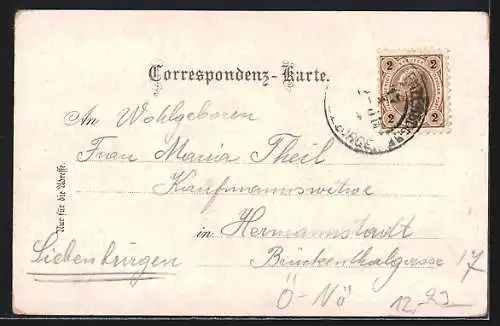 Correspondenz-Karte.
2 2
2 2
An Wohlgeboren
Frau Maria Theil
Kaufmannswitwe
in Hermannstadt
Siebenbürgen
Bruckenthalgasse 17
Nur für die Adresse.
Ö-Nö
12.-23